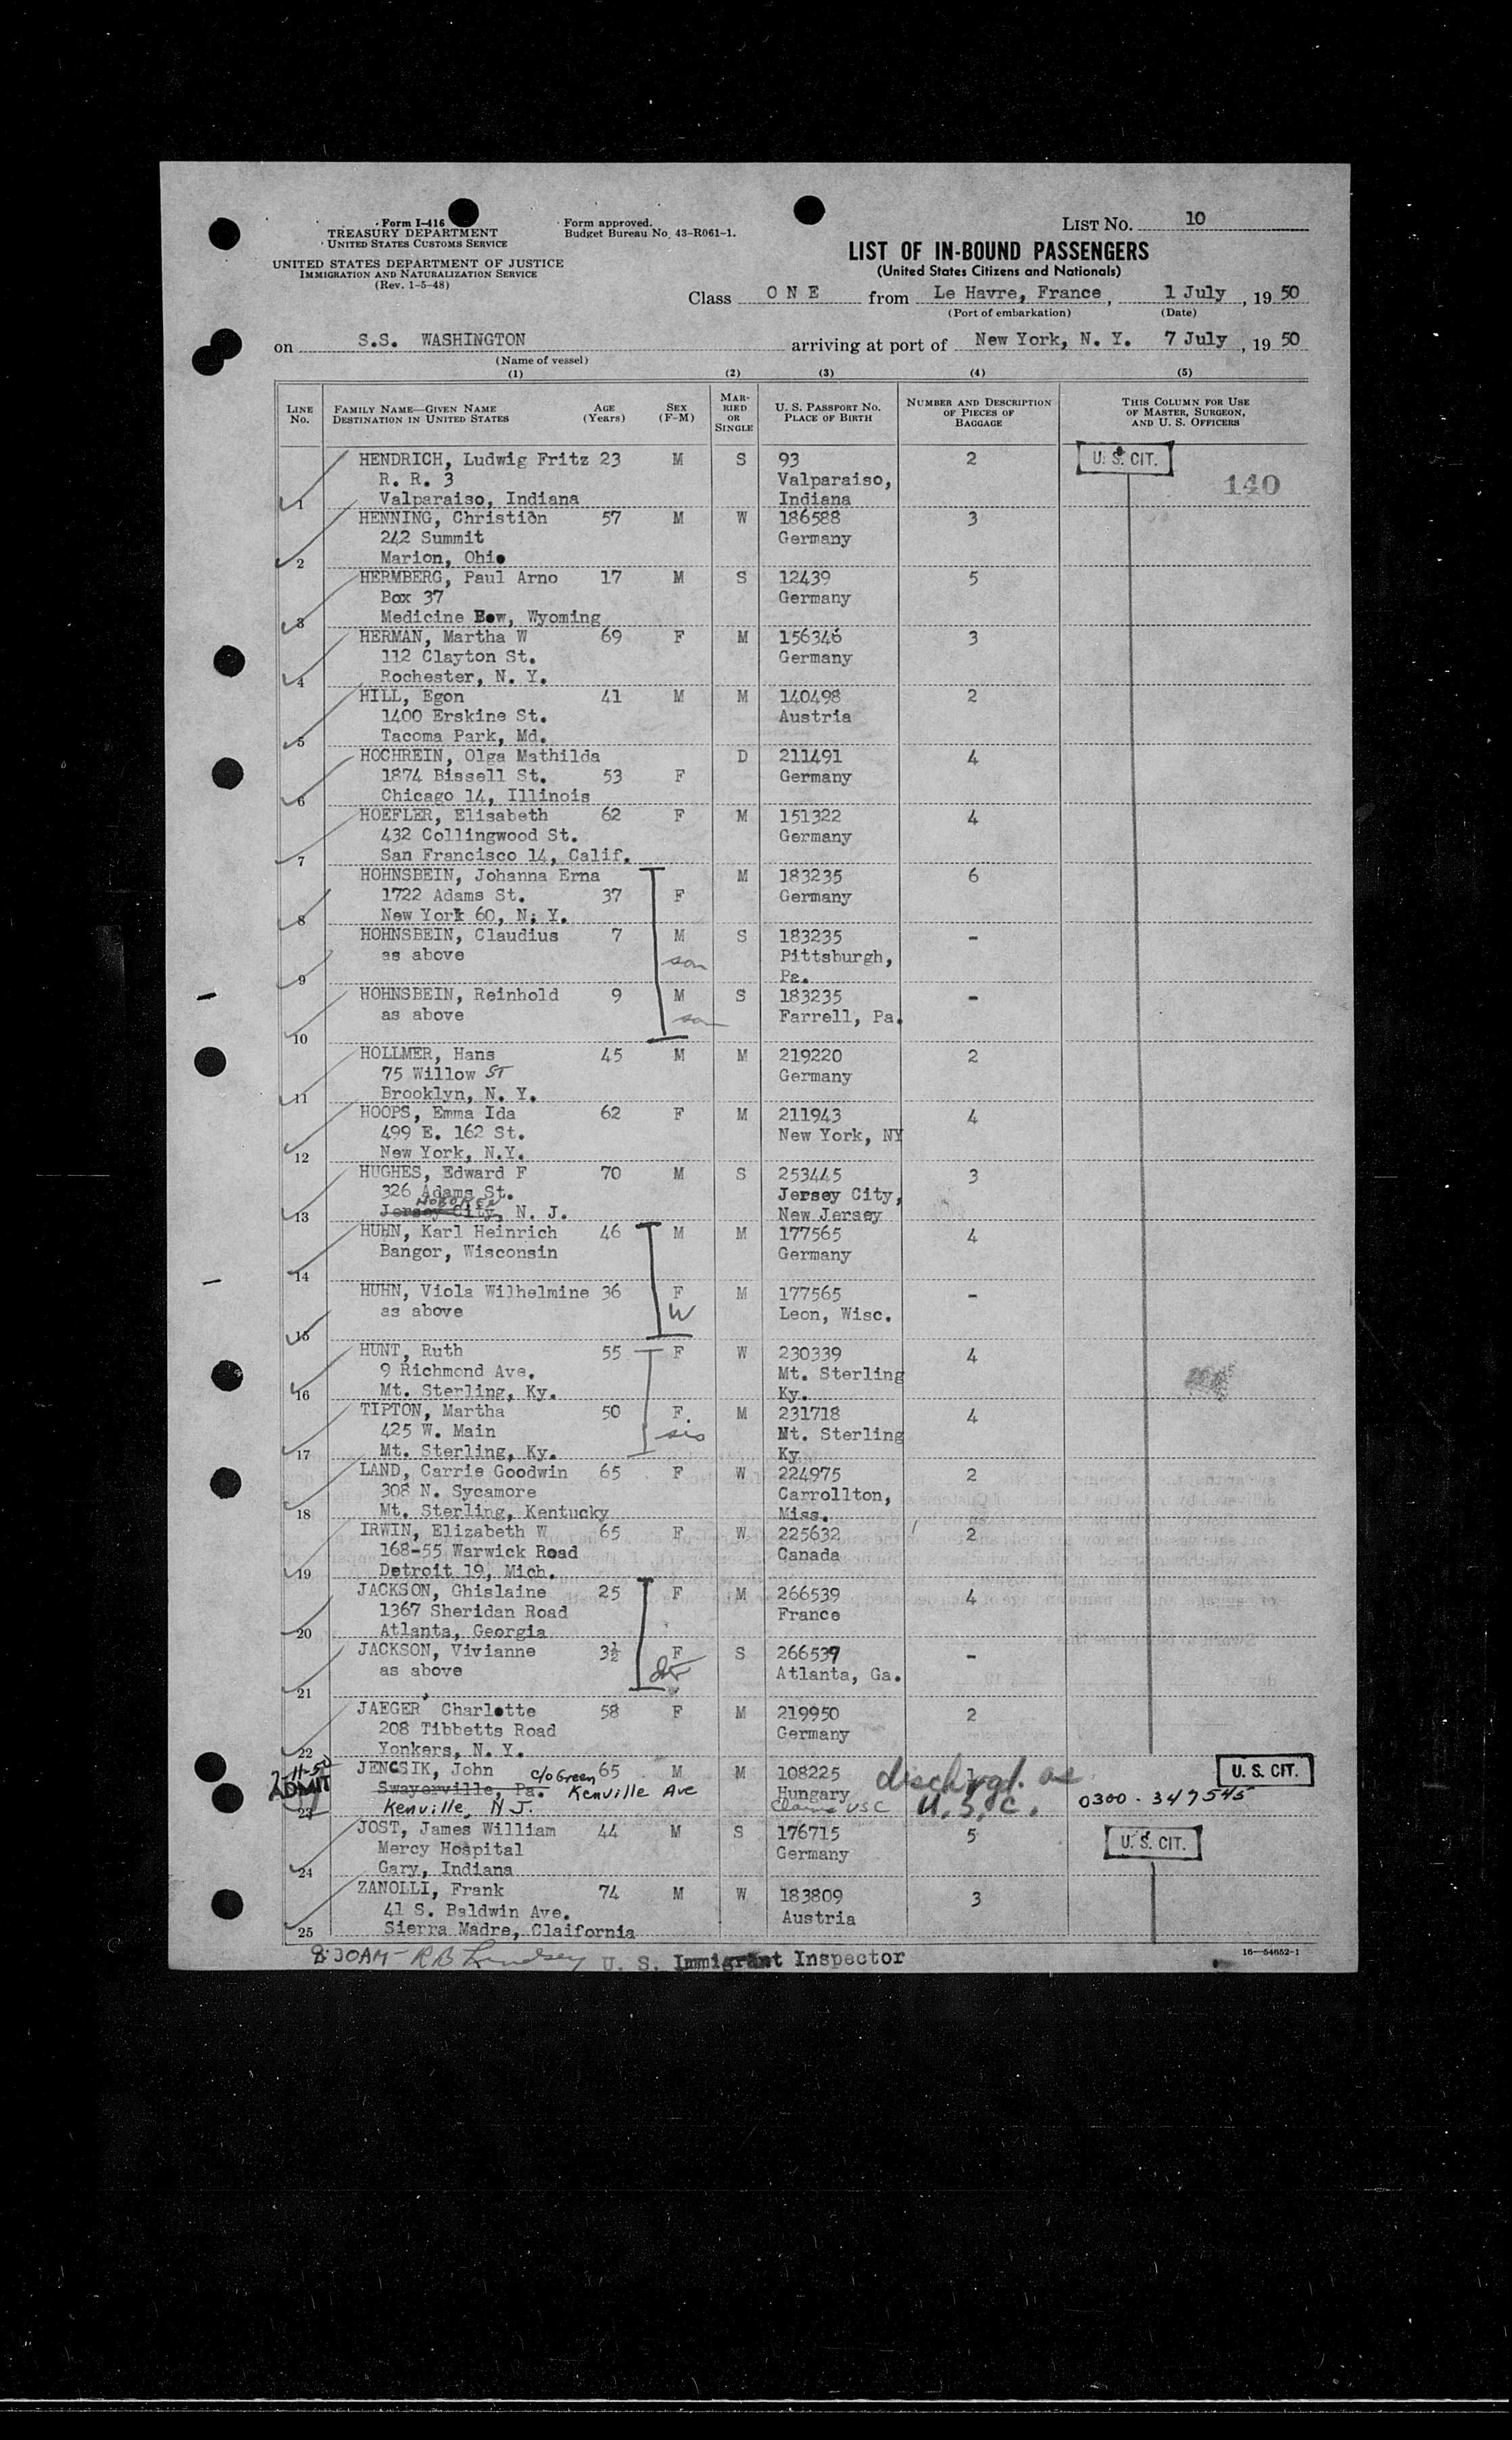 Form I-416
TREASURY DEPARTMENT
UNITED STATES CUSTOMS SERVICE
UNITED STATES DEPARTMENT OF JUSTICE
IMMIGRATION AND NATURALIZATION SERVICE
(Rev. 1-5-48)
Form approved.
Budget Bureau No. 43-R061-1.
LIST NO. 10
LIST OF IN-BOUND PASSENGERS
(United States Citizens and Nationals)
Class O N E from Le Havre, France, 1 July, 19 50
(Port of embarkation) (Date)
on S.S. WASHINGTON arriving at port of New York, N. Y. 7 July, 19 50
(Name of vessel)
(1) (2) (3) (4) (5)
LINE NO. FAMILY NAME—GIVEN NAME DESTINATION IN UNITED STATES AGE (Years) SEX (F-M) MARRIED OR SINGLE U. S. PASSPORT NO. PLACE OF BIRTH NUMBER AND DESCRIPTION OF PIECES OF BAGGAGE THIS COLUMN FOR USE OF MASTER, SURGEON, AND U. S. OFFICERS
HENDRICH, Ludwig Fritz 23 M S 93 2 U. S. CIT.
R. R. 3 Valparaiso, 140
1 Valparaiso, Indiana Indiana
HENNING, Christian 57 M W 186588 3
242 Summit Germany
2 Marion, Ohio
HERMBERG, Paul Arno 17 M S 12439 5
Box 37 Germany
3 Medicine Bow, Wyoming
HERMAN, Martha W 69 F M 156346 3
112 Clayton St. Germany
4 Rochester, N. Y.
HILL, Egon 41 M M 140498 2
1400 Erskine St. Austria
5 Tacoma Park, Md.
HOCHREIN, Olga Mathilda D 211491 4
1874 Bissell St. 53 F Germany
6 Chicago 14, Illinois
HOEFLER, Elisabeth 62 F M 151322 4
432 Collingwood St. Germany
7 San Francisco 14, Calif.
HOHNSBEIN, Johanna Erna M 183235 6
1722 Adams St. 37 F Germany
8 New York 60, N. Y.
HOHNSBEIN, Claudius 7 M S 183235 -
as above son Pittsburgh,
9 Pa.
HOHNSBEIN, Reinhold 9 M S 183235 -
as above son Farrell, Pa.
10
HOLLMER, Hans 45 M M 219220 2
75 Willow ST Germany
11 Brooklyn, N. Y.
HOOPS, Emma Ida 62 F M 211943 4
499 E. 162 St. New York, NY
12 New York, N.Y.
HUGHES, Edward F 70 M S 253445 3
326 Adams St. Jersey City,
HOBOKEN
13 Jersey City, N. J. New Jersey
HUHN, Karl Heinrich 46 M M 177565 4
Bangor, Wisconsin Germany
14
HUHN, Viola Wilhelmine 36 F M 177565 -
as above W Leon, Wisc.
15
HUNT, Ruth 55 F W 230339 4
9 Richmond Ave. Mt. Sterling
16 Mt. Sterling, Ky. Ky.
TIPTON, Martha 50 F. M 231718 4
425 W. Main sis Mt. Sterling
17 Mt. Sterling, Ky. Ky
LAND, Carrie Goodwin 65 F W 224975 2
308 N. Sycamore Carrollton,
18 Mt. Sterling, Kentucky Miss.
IRWIN, Elizabeth W 65 F W 225632 2
168-55 Warwick Road Canada
19 Detroit 19, Mich.
JACKSON, Ghislaine 25 F M 266539 4
1367 Sheridan Road France
20 Atlanta, Georgia
JACKSON, Vivianne 3½ F S 266539 -
as above dtr Atlanta, Ga.
21
JAEGER, Charlotte 58 F M 219950 2
208 Tibbetts Road Germany
22 Yonkers, N. Y.
JENCSIK, John 65 M M 108225 1 dischrgd. as U. S. CIT.
ADMIT Swayerville, Pa. c/o Green Kenville Ave Hungary U. S. C. 0300-347545
23 Kenville, N J. Claims USC
JOST, James William 44 M S 176715 5 U. S. CIT.
Mercy Hospital Germany
24 Gary, Indiana
ZANOLLI, Frank 74 M W 183809 3
41 S. Baldwin Ave. Austria
25 Sierra Madre, Claifornia
8:30AM- R B Lindsey U. S. Immigrant Inspector 16—54652-1